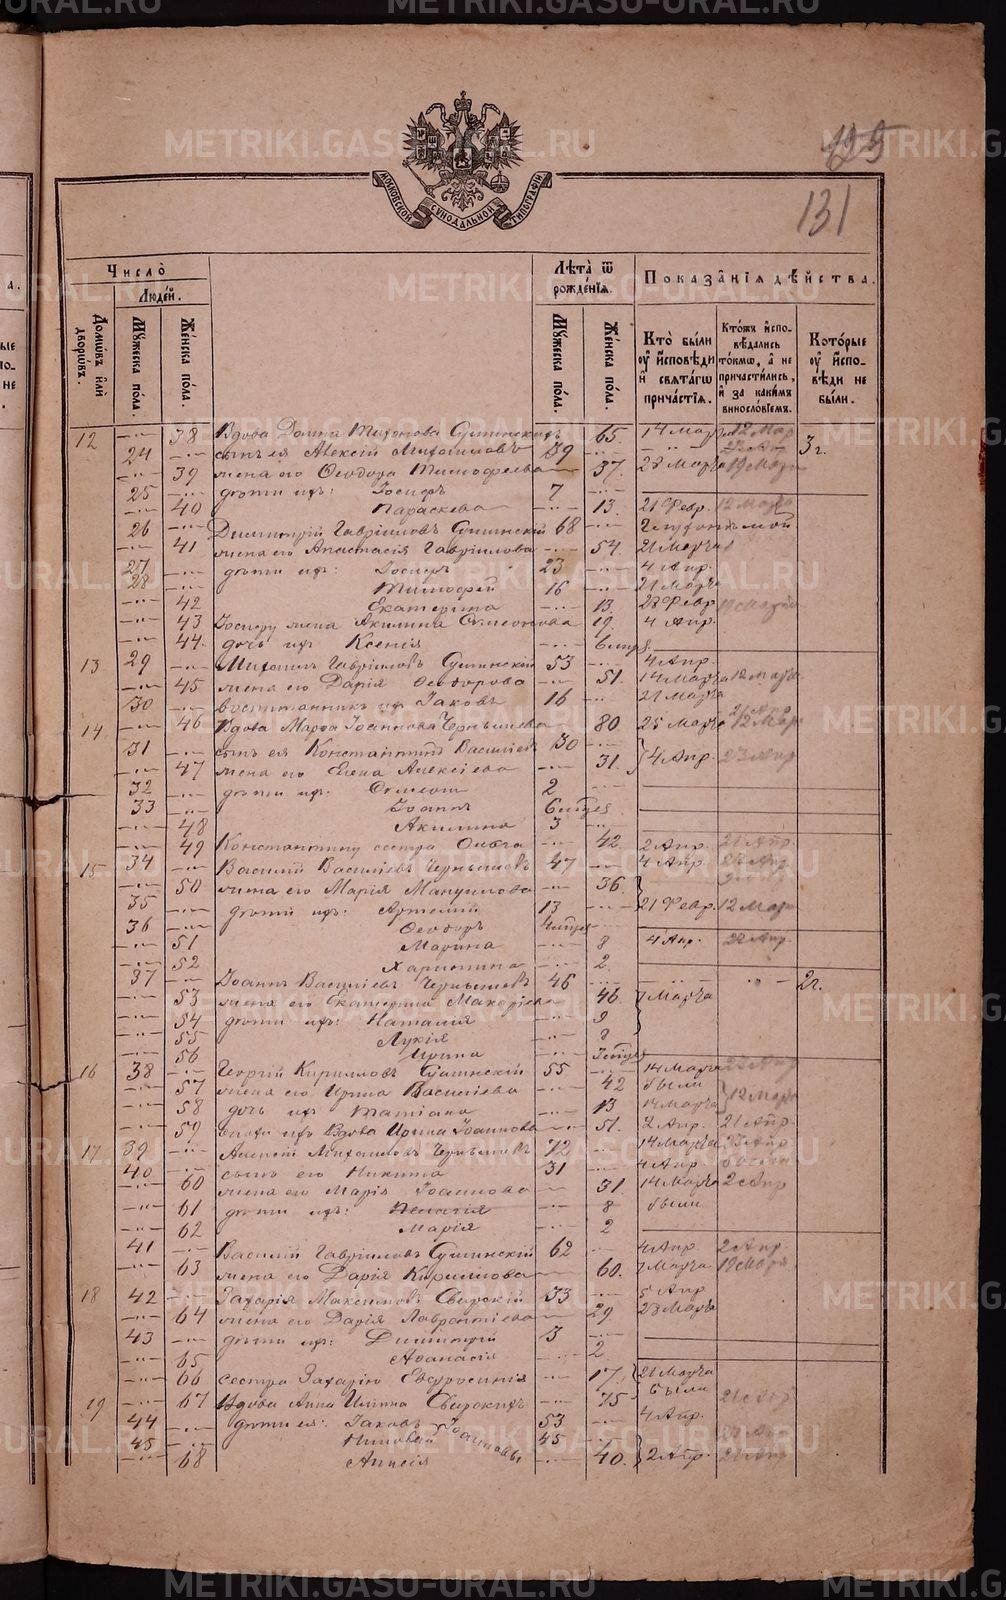 METRIKI.GASO-URAL.RU
125
131
МОСКОВСКОЙ СѴНОДАЛЬНОЙ ТИПОГРАФІИ
Число̀
Людей.
Домѡвъ или дворѡвъ.
Мꙋжеска пола.
Женска пола.
Лѣта̀ ѿ рожденїѧ.
Мꙋжеска пола.
Женска пола.
Показанїѧ дѣйства.
Кто̀ были ᲂу҆ и҆сповѣди и҆ свѧтагѡ причастїѧ.
Ктожъ и҆сповѣдались токмѡ, а҆ не причастились, и҆ за какимъ винословїемъ.
Которые ᲂу҆ и҆сповѣди не были.
12 38 Вдова Домна Тихонова Сушинскихъ 65. 14 Мар 12 Мар
24 сынъ ея Алексій Михаиловъ 39 3 г.
39 жена его Ѳеодора Тимоѳеева 37. 23 Марта 19 Мар
25 дѣти ихъ: Іосифъ 7
40 Параскева 13. 21 Февр. 12 Марта
26 Димитрій Гавріиловъ Сушинскій 68
41 жена его Анастасія Гавріилова 54. 21 Марта
27 дѣти ихъ: Іосифъ 23 4 Апр.
28 Тимоѳей 16 21 Марта
42 Екатерина 13. 23 Февр
43 Іосифу жена Акилина Симеонова 19. 4 Апр.
44. дочь ихъ Ксенія 6 мцев.
13 29 Михаилъ Гавріиловъ Сушинскій 53 4 Апр.
45 жена его Дарія Ѳеодорова 51. 14 Марта 12 Марта
30 воспитанникъ ихъ Іаковъ 16 21 Марта
14 46 Вдова Марѳа Іоаннова Чернышева 80 25 Марта 12 Мар
31 сынъ ея Константинъ Василіевъ 30
47 жена его Елена Алексіева 31. 4 Апр. 23 Апр
32 дѣти ихъ: Симеонъ 2
33 Іоаннъ 6 мцев
48 Акилина 3
49 Константину сестра Ольга 42. 2 Апр. 21 Апр
15 34 Василій Василіевъ Чернышевъ 47 4 Апр.
50 жена его Марія Мануилова 36.
35 дѣти ихъ: Артемій 13 21 Февр. 12 Мар
36 Ѳеодоръ 4 мцев
51 Марина 8 4 Апр. 22 Апр.
52 Харитина 2.
37 Іоаннъ Василіевъ Чернышевъ 46 2 г.
53 жена его Екатерина Макаріева 46. 7 Марта
54 дѣти ихъ: Наталія 9
55 Лукія 8
56 Ирина 3 мцев
16 38 Георгій Кирилловъ Сушинскій 55 14 Марта
57 жена его Ирина Василіева 42 были
58 дочь ихъ Татіана 13 14 Марта 12 Марта
59 Вдова Ирина Іоаннова 51. 2 Апр. 21 Апр.
17 39 Алексій Михаиловъ Чернышевъ 72 14 Марта 23 Апр
40 сынъ его Никита 31 4 Апр
60 жена его Марія Іоаннова 31. 14 Марта 2 Апр
61 дѣти ихъ: Пелагія 8 были
62 Марія 2
41 Василій Гавріиловъ Сушинскій 62 4 Апр. 2 Апр
63 жена его Дарія Кириллова 60. 7 Марта 12 Марта
18 42 Захарія Максимовъ Свирскій 33 5 Апр
64 жена его Дарія Лаврентіева 29 23 Марта
43 дѣти ихъ: Димитрій 3
65 Аѳанасія 2
66 сестра Захарію Евфросинія 17. 21 Марта
19 67 Вдова Анна Ильина Свирскихъ 75 были 21 Апр
44 дѣти ея: Іаковъ 53 4 Апр.
45 Іоанновы 45
68 Аннсія 40. 2 Апр. 21 Апр